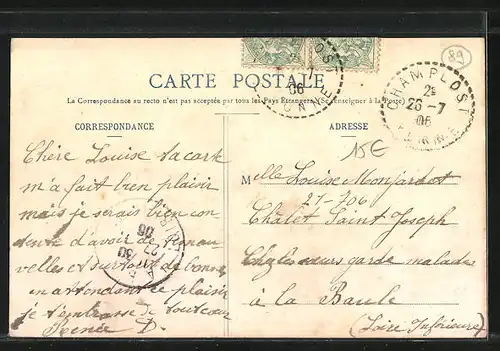 89
CARTE POSTALE
La Correspondance au recto n'est pas acceptée par tous les Pays Étrangers (Se renseigner à la Poste)
CORRESPONDANCE
ADRESSE
CHAMPLOST
26-7
06
YONNE
15E
Chère Louise ta carte
m'a fait bien plaisir
mais je serais bien con
tente d'avoir de tes nou
velles et surtout de bonnes
en attendant ce plaisir
je t'embrasse de tout cœur
Renée D.
Melle Louise Monjardet
27-706
Chalet Saint Joseph
Chez les sœurs garde malades
à la Baule
(Loire Inférieure)